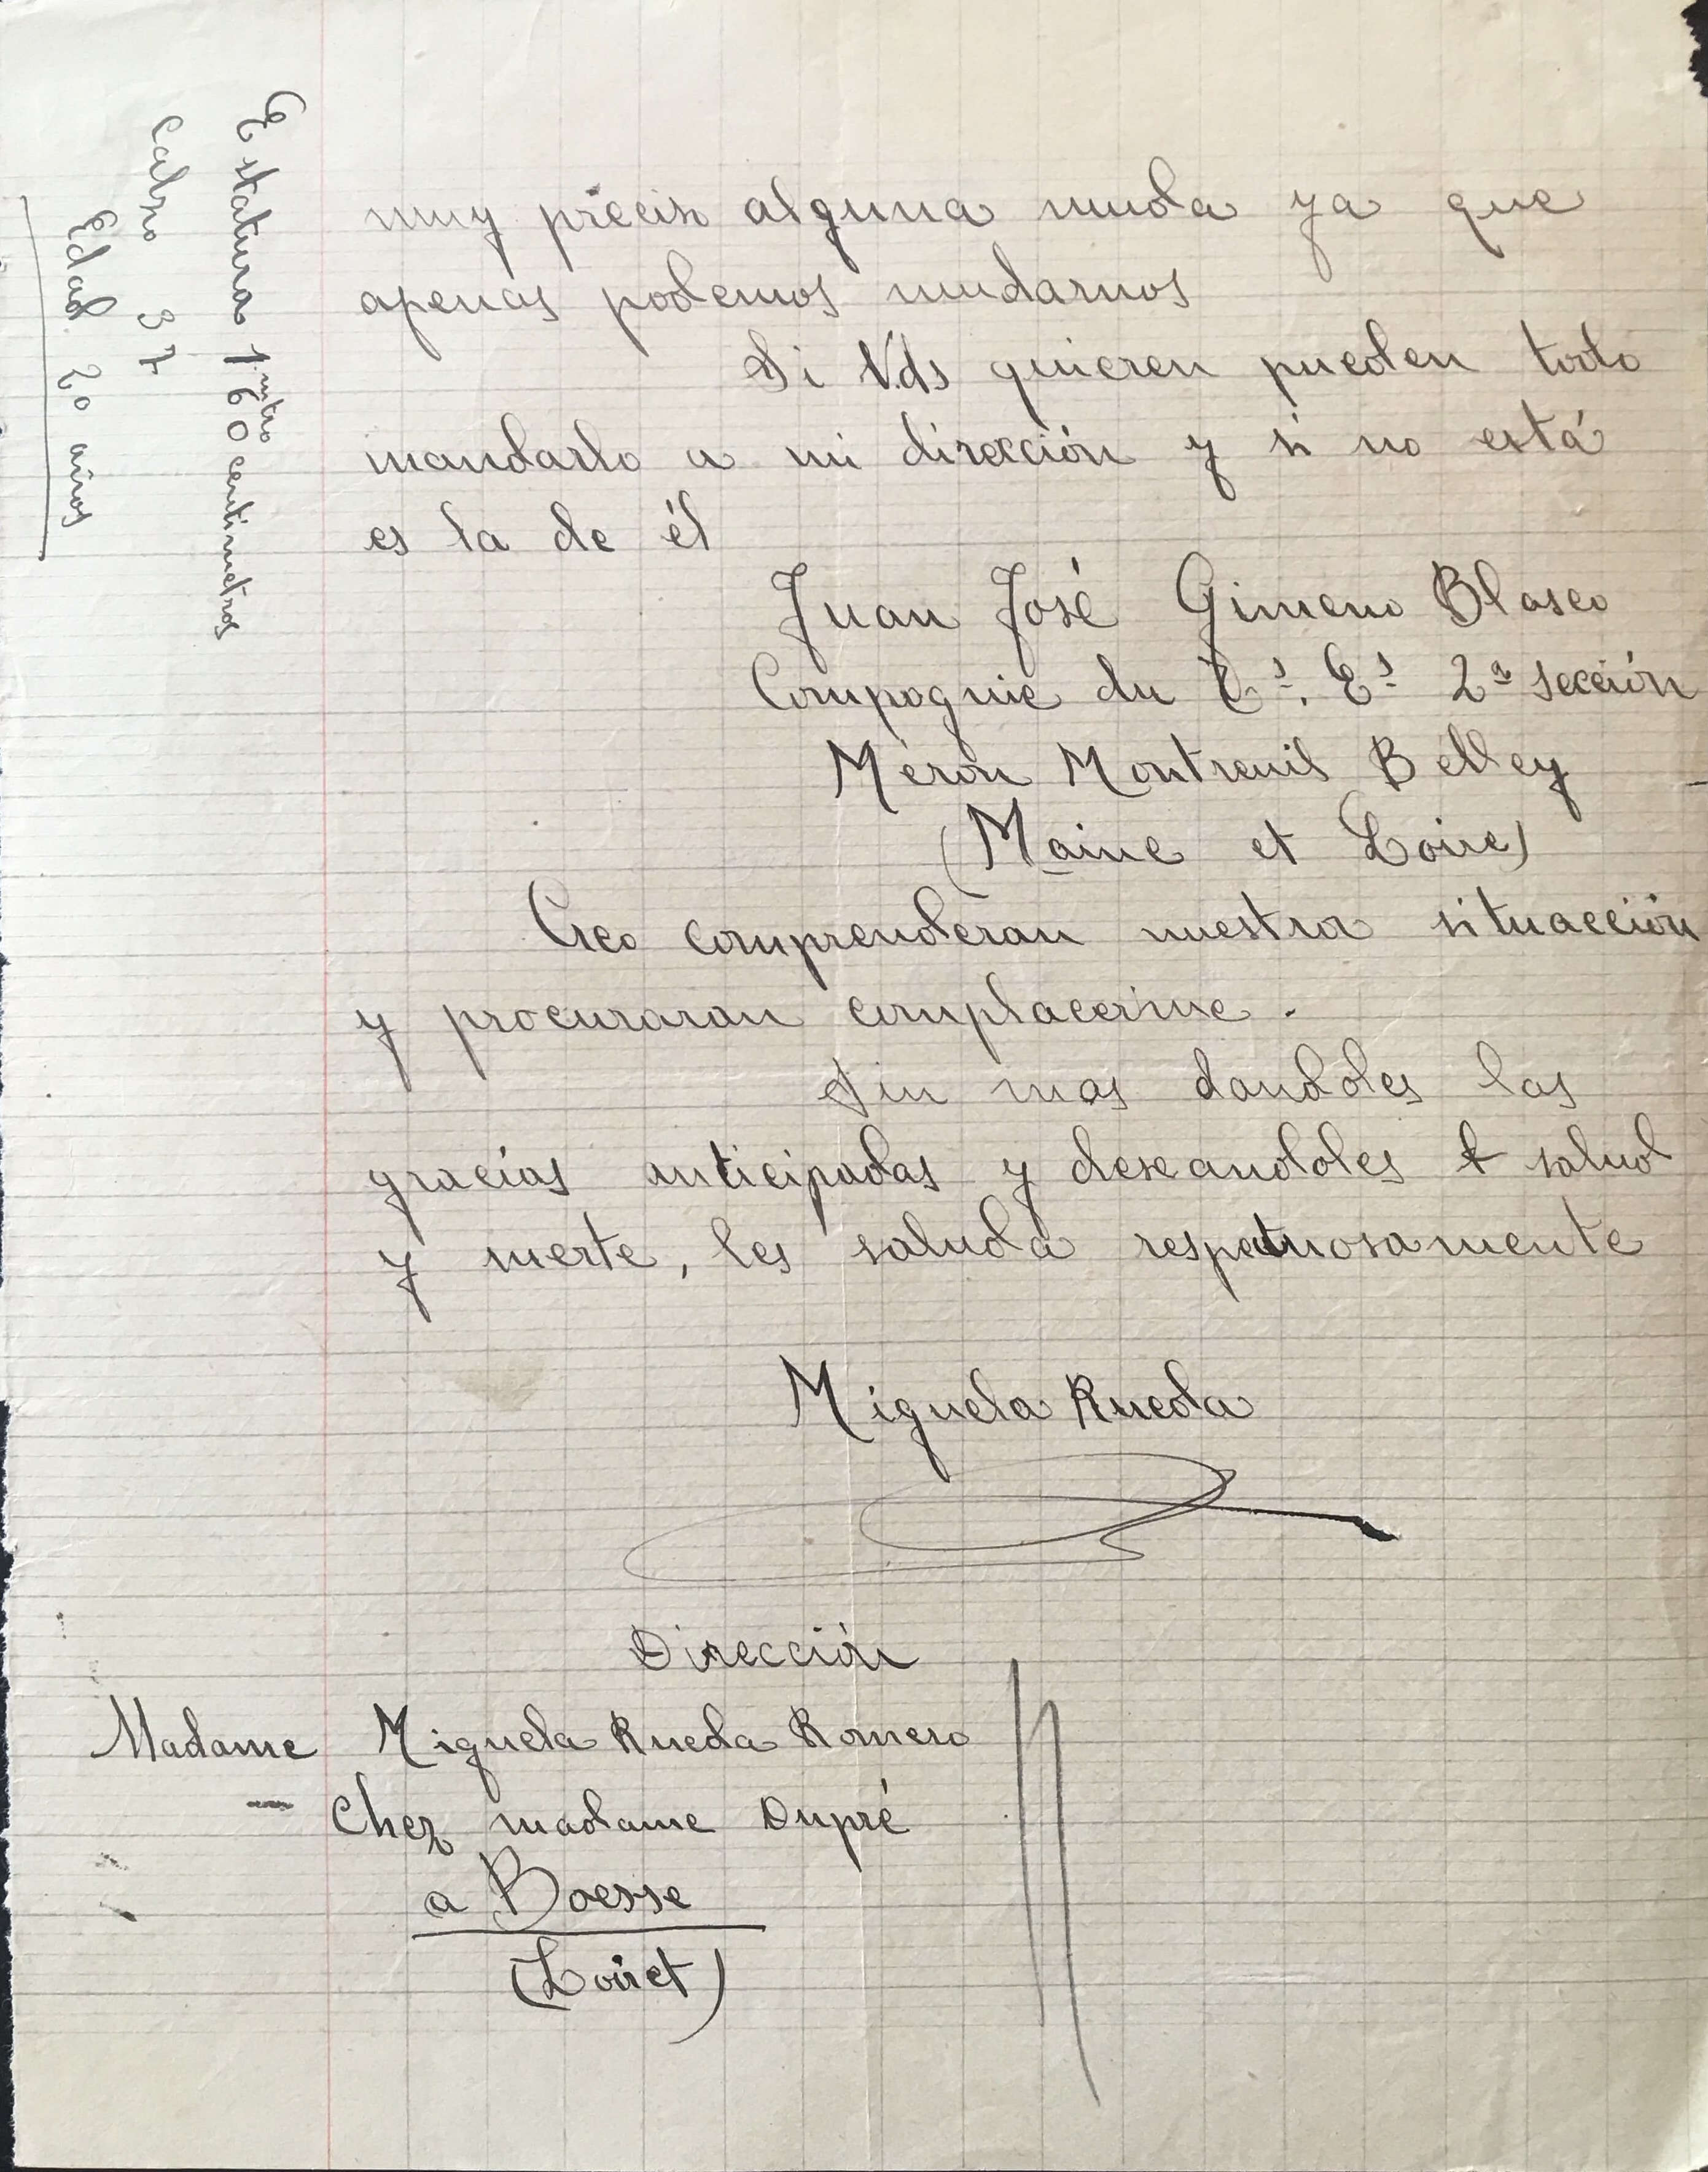 muy précis alguna muda ya que
apenas podemos mudarnos
Si Vds quieren pueden todo
mandarlo a mi dirección y si no está
es la de él
Juan José Gimeno Blasco
Compagnie du T.s. E.s 2ª sección
Méron Montreuil Belley
(Maine et Loire)
Creo comprenderan nuestra situacción
y procuraran complacerme.
Sin mas dandoles las
gracias anticipadas y deseandoles salud
y suerte, les saluda respetuosamente
Miguela Rueda
Dirección
Madame Miguela Rueda Romero
- Chez madame Dupré
a Boesse
(Loiret)
Estatura 1 mtro 60 centimetros
Calzo 37
Edad 20 años